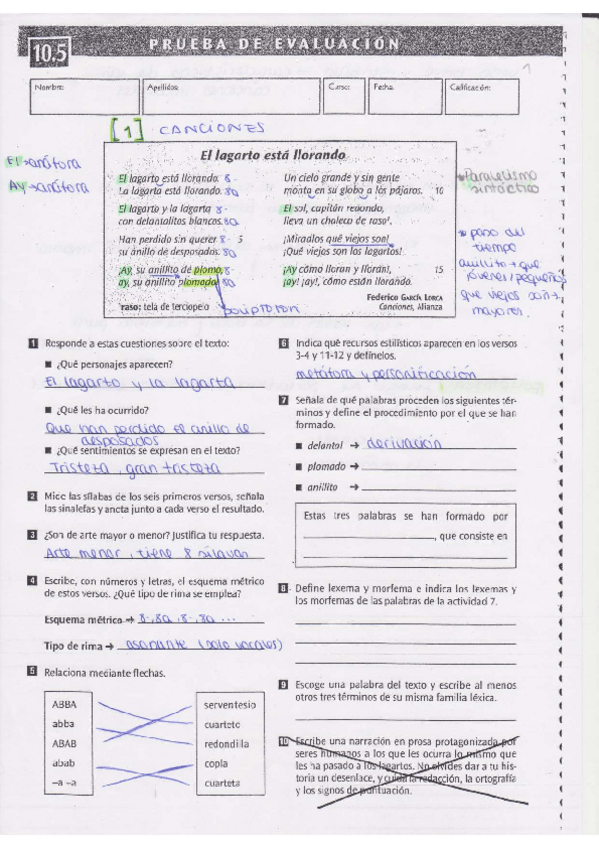 10.5 PRUEBA DE EVALUACIÓN
1
Nombre: Apellidos: Curso: Fecha: Calificación:
[1] CANCIONES
El → anáfora
Ay → anáfora
El lagarto está llorando
El lagarto está llorando. 8 -
La lagarta está llorando. 8a
El lagarto y la lagarta 8 -
con delantalitos blancos. 8a
Han perdido sin querer 8 - 5
su anillo de desposados. 8a
¡Ay, su anillito de plomo, 8 -
ay, su anillito plomado! 8a
raso: tela de terciopelo
Un cielo grande y sin gente
monta en su globo a los pájaros. 10
El sol, capitán redondo,
lleva un chaleco de raso¹.
¡Miradlos qué viejos son!
¡Qué viejos son los lagartos!
¡Ay cómo lloran y lloran, 15
¡ay! ¡ay!, cómo están llorando.
Federico García Lorca
Canciones, Alianza
poliptoton
Paralelismo
sintáctico
paso del
tiempo
anillito → que
jóvenes/pequeños
que viejos son →
mayores.
1 Responde a estas cuestiones sobre el texto:
■ ¿Qué personajes aparecen?
El lagarto y la lagarta
■ ¿Qué les ha ocurrido?
Que han perdido el anillo de
desposados
■ ¿Qué sentimientos se expresan en el texto?
Tristeza, gran tristeza
2 Mide las sílabas de los seis primeros versos, señala
las sinalefas y anota junto a cada verso el resultado.
3 ¿Son de arte mayor o menor? Justifica tu respuesta.
Arte menor, tiene 8 sílavas
4 Escribe, con números y letras, el esquema métrico
de estos versos. ¿Qué tipo de rima se emplea?
Esquema métrico → 8-, 8a, 8-, 8a ...
Tipo de rima → asonante (solo vocales)
5 Relaciona mediante flechas.
ABBA serventesio
abba cuarteto
ABAB redondilla
abab copla
–a –a cuarteta
6 Indica qué recursos estilísticos aparecen en los versos
3-4 y 11-12 y defínelos.
metáfora y personificación
7 Señala de qué palabras proceden los siguientes tér-
minos y define el procedimiento por el que se han
formado.
■ delantal → derivación
■ plomado →
■ anillito →
Estas tres palabras se han formado por
, que consiste en
8 Define lexema y morfema e indica los lexemas y
los morfemas de las palabras de la actividad 7.
9 Escoge una palabra del texto y escribe al menos
otros tres términos de su misma familia léxica.
10 Escribe una narración en prosa protagonizada por
seres humanos a los que les ocurra lo mismo que
les ha pasado a los lagartos. No olvides dar a tu his-
toria un desenlace, y cuida la redacción, la ortografía
y los signos de puntuación.